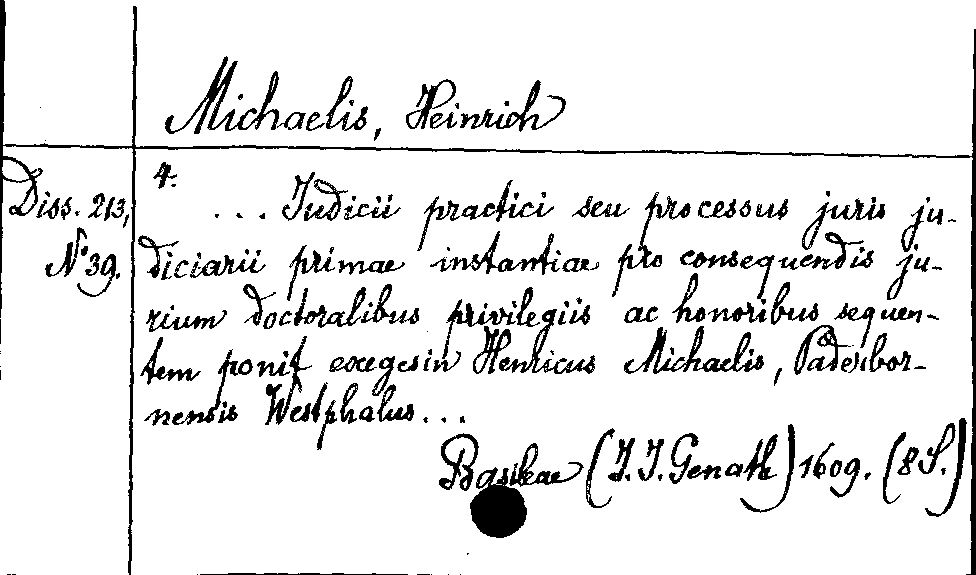 Michaelis, Heinrich
Diss. 213,
No 39.
4.
... Iudicii practici seu processus juris ju-
diciarii primae instantiae pro consequendis ju-
rium doctoralibus privilegiis ac honoribus sequen-
tem ponit exegesin Henricus Michaelis, Paderbor-
nensis Westphalus...
Basileae (J. J. Genath) 1609. (8 S.)